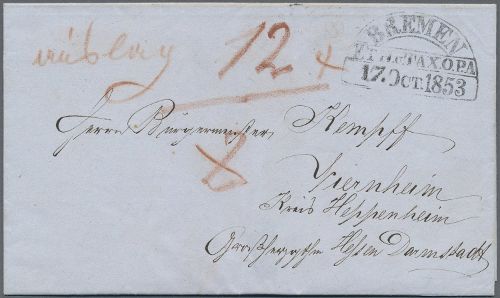 12
BREMEN
TH.&TAX.O.PA
17.OCT.1853
Herrn Bürgermeister Kempff
Viernheim
Kreis Heppenheim
Großherzogthm Hessen Darmstadt